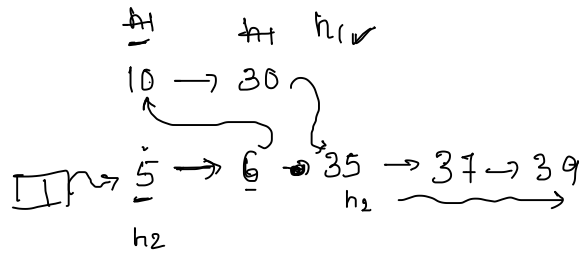 h1 h1 h1
10 → 30
5 → 6 → 35 → 37 → 39
h2
h2